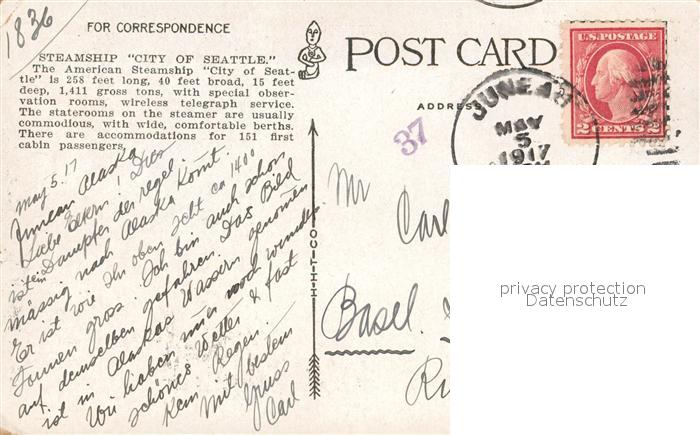 1836
FOR CORRESPONDENCE
STEAMSHIP "CITY OF SEATTLE."
The American Steamship "City of Seat-
tle" is 258 feet long, 40 feet broad, 15 feet
deep, 1,411 gross tons, with special obser-
vation rooms, wireless telegraph service.
The staterooms on the steamer are usually
commodious, with wide, comfortable berths.
There are accommodations for 151 first
cabin passengers.
May 5. 17
Juneau Alaska
Liebe Eltern! Dies
ist ein Dampfer der regel
mässig nach Alaska komt.
Er ist wie Ihr oben seht ca 1400
Tonnen gross. Ich bin auch schon
auf demselben gefahren. Das Bild
ist in Alaskas Wassern genommen
Wir haben nun noch wunder
schönes Wetter & fast
kein Regen.
Mit bestem
Gruss
Carl
H-H-T-CO
POST CARD
ADDRESS
37
JUNEAU
MAY
5
1917
U.S. POSTAGE
2 CENTS 2
Mr
Carl
Basel.
privacy protection
Datenschutz